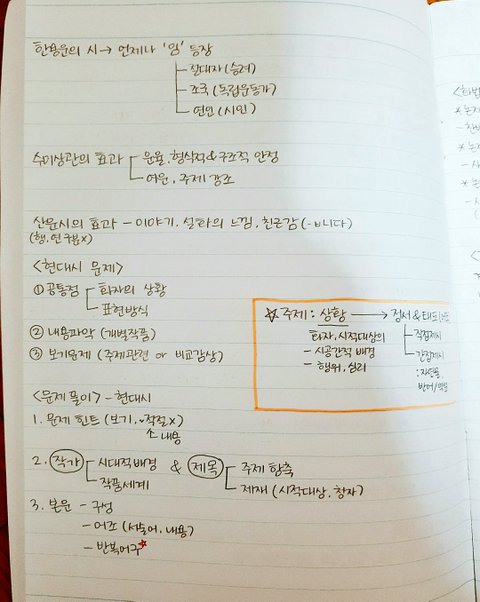 한용운의 시 → 언제나 '임' 등장
절대자 (승려)
조국 (독립운동가)
연인 (시인)
수미상관의 효과
운율, 형식적&구조적 안정
여운, 주제 강조
산문시의 효과 - 이야기, 설화의 느낌, 친근감 (-ㅂ니다)
(행, 연 구분x)
<현대시 문제>
① 공통점
화자의 상황
표현방식
② 내용파악 (개별작품)
③ 보기문제 (주제관련 or 비교감상)
☆ 주제 : 상황 → 정서 & 태도
화자, 시적대상의
- 시공간적 배경
- 행위, 심리
직접제시
간접제시
: 자연물,
반어/역설
<문제풀이> - 현대시
1. 문제 힌트 (보기, 적절x)
내용
2. 작가
시대적배경
작품세계
& 제목
주제 함축
제재 (시적대상, 청자)
3. 본문 - 구성
- 어조 (서술어, 내용)
- 반복어구☆